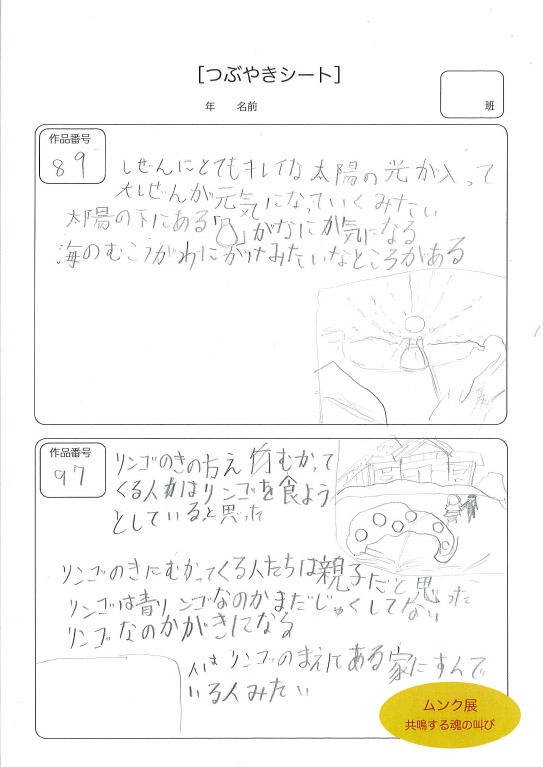 [つぶやきシート]
年 名前
班
作品番号
89
しぜんにとてもキレイな太陽の光が入って
大しぜんが元気になっていくみたい
太陽の下にある「」がなにか気になる
海のむこうがわにがけみたいなところがある
作品番号
97
リンゴのきの方え向むかって
くる人はリンゴを食よう
としていると思った
リンゴのきにむかってくる人たちは親子だと思った
リンゴは青リンゴなのかまだじゅくしてない
リンゴなのかがきになる
人は リンゴのまえにある家にすんで
いる人みたい
ムンク展
共鳴する魂の叫び